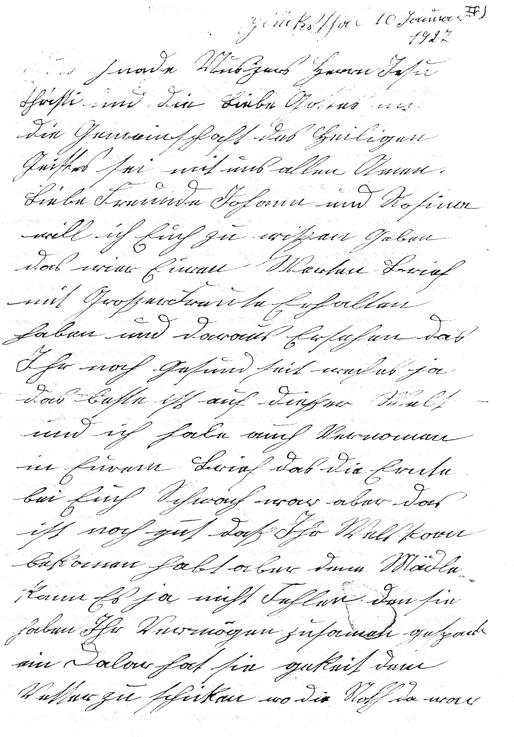 II)
10 Januar
1927
Gnade Unsers Herrn Jesu
Christi und die Liebe Gottes un
die Gemeinschaft des Heiligen
Geistes sei mit uns allen Amen.
Liebe Freunde Johann und Rosina
will ich Euch zu wissen Geben
das wier Euren Werten Brief
mit Großer Freute Erhalten
haben und daraus Ersehen das
Ihr noch Gesund seit welches ja
das beste ist auf dieser Welt
und ich habe auch Vernomen
in Eurem Brief das die Ernte
bei Euch Schwach war aber das
ist noch gut daß Ihr Welschkorn
bekomen habt aber dem Mädle
kann Es ja nicht Fehlen den sie
haben Ihr Vermögen zusamen gespart
ein Dalar hat sie gekeit dem
Vetter zu schicken wo die Noth da war